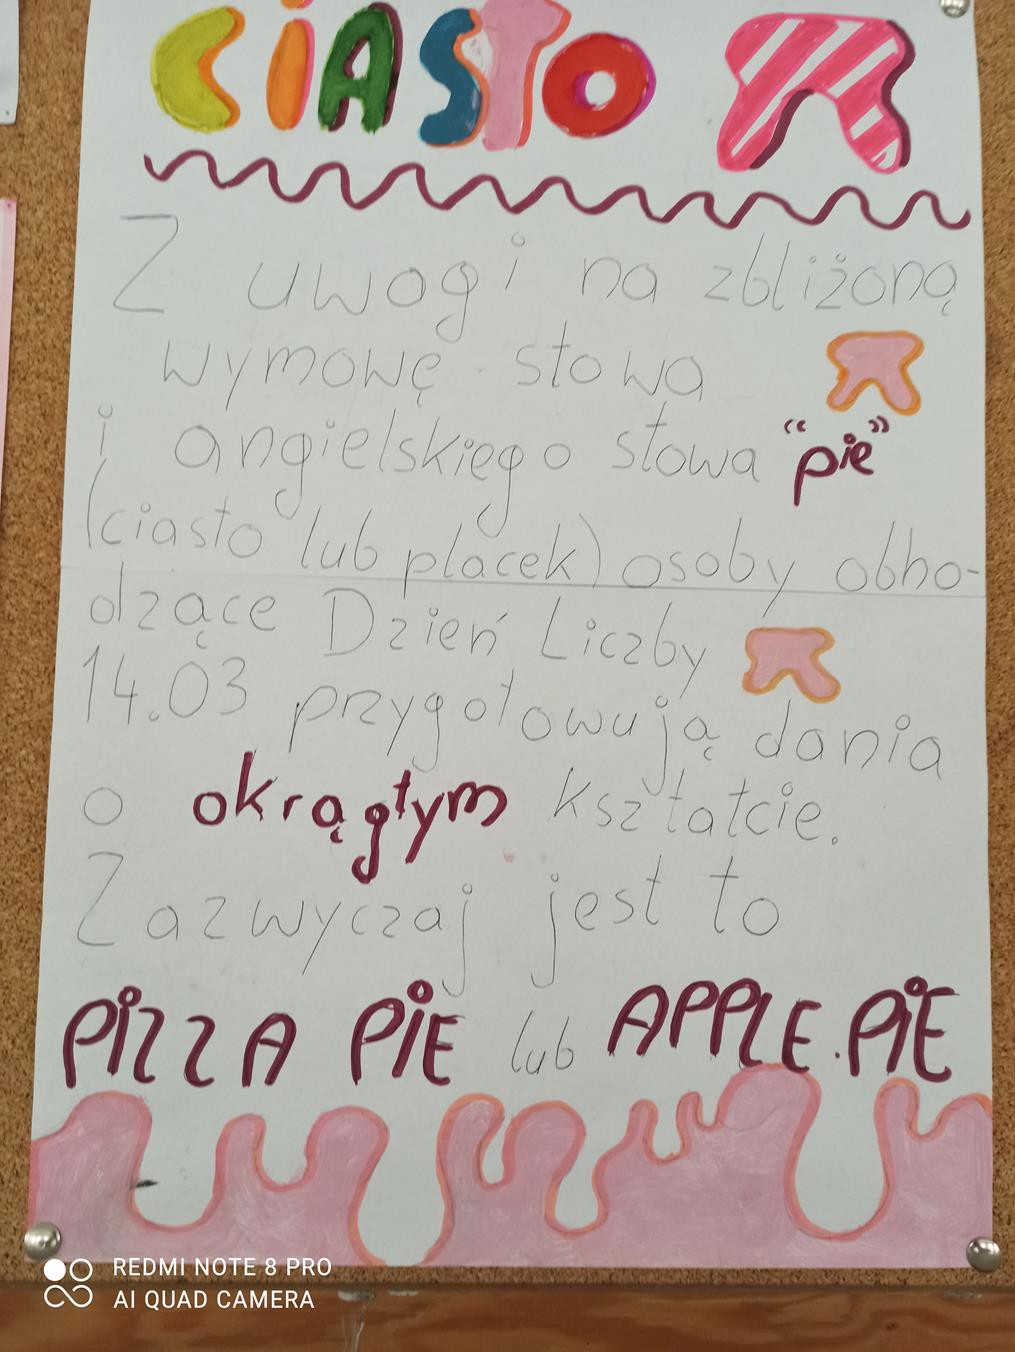 CiASTO π
Z uwagi na zbliżoną
wymowę słowa π
i angielskiego słowa "pie"
(ciasto lub placek) osoby obho-
dzące Dzień Liczby π
14.03 przygotowują dania
o okrągłym kształcie.
Zazwyczaj jest to
PiZZA PiE lub APPLE PiE
REDMI NOTE 8 PRO
AI QUAD CAMERA